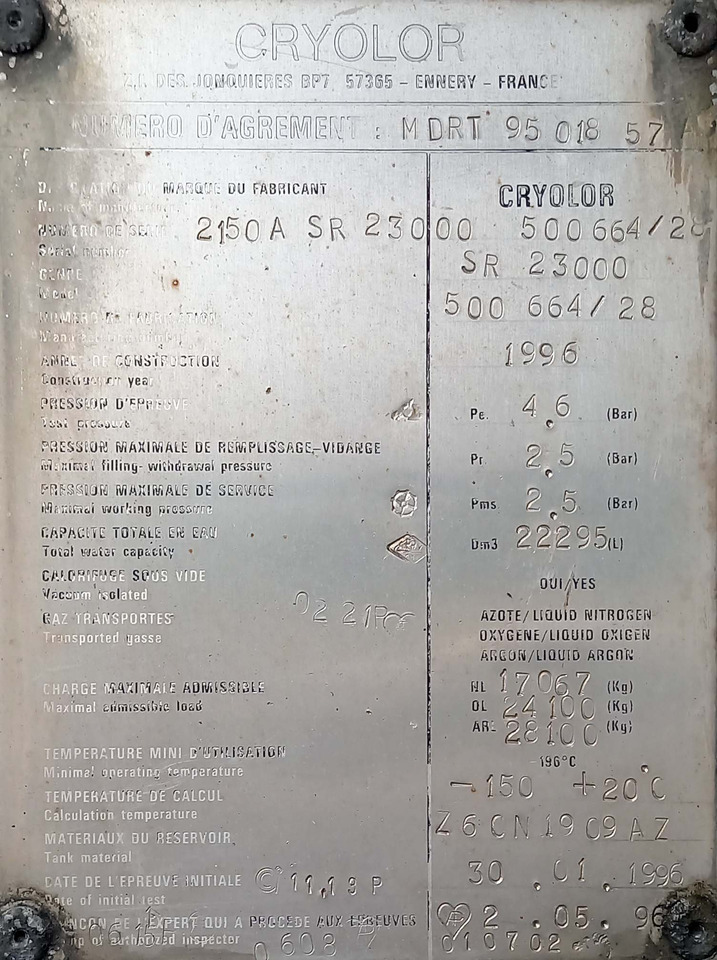 CRYOLOR
Z.I. DES JONQUIERES BP7 57365 - ENNERY - FRANCE
NUMERO D'AGREMENT : MDRT 95 018 57
MARQUE DU FABRICANT CRYOLOR
Name of
NUMERO DE 2150 A SR 23000 00 500 664/28
Serial number
GENRE SR 23000
Model
NUMERO 500 664/28
ANNEE DE CONSTRUCTION 1996
Construction year
PRESSION D'EPREUVE Pe. 4,6 (Bar)
Test pressure
PRESSION MAXIMALE DE REMPLISSAGE-VIDANGE Pr 2,5 (Bar)
Maximal filling-withdrawal pressure
PRESSION MAXIMALE DE SERVICE Pms 2,5 (Bar)
Maximal working pressure
CAPACITE TOTALE EN EAU Dm3 22295 (L)
Total water capacity
CALORIFUGE SOUS VIDE OUI/YES
Vacuum isolated
GAZ TRANSPORTES AZOTE/LIQUID NITROGEN
Transported gasse OXYGENE/LIQUID OXIGEN
ARGON/LIQUID ARGON
CHARGE MAXIMALE ADMISSIBLE NL 17067 (Kg)
Maximal admissible load OL 24100 (Kg)
AR 28100 (Kg)
TEMPERATURE MINI D'UTILISATION -196°C
Minimal operating temperature
TEMPERATURE DE CALCUL -150 +20°C
Calculation temperature
MATERIAUX DU RESERVOIR Z6CN1909AZ
Tank material
DATE DE L'EPREUVE INITIALE 11.13 P 30 . 01 . 1996
Date of initial test
L'EXPERT QUI A PROCEDE AUX EPREUVES 2 . 05 . 96
of authorized inspector 0608 010702